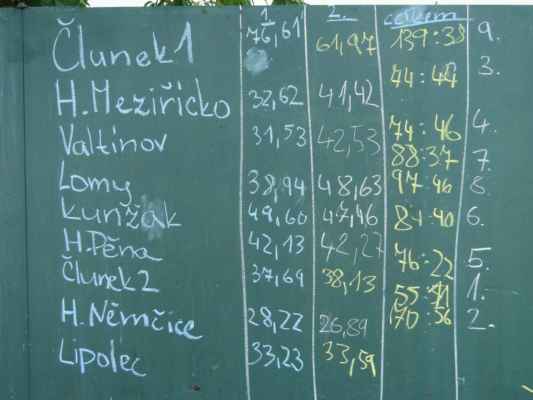 1. 2. celkem
Člunek1 76,61 61,97 139:38 9.
H.Meziříčko 32,62 41,42 3.
Valtínov 31,53 42,53 74:46 4.
Lomy 38,94 48,63 88:37 7.
Kunžak 49,60 47,46 97:46 8.
H.Pěna 42,13 42,27 84:40 6.
Člunek2 37,69 38,13 76:22 5.
H.Němčice 28,22 26,89 1.
Lipolec 33,23 33,59 70:56 2.